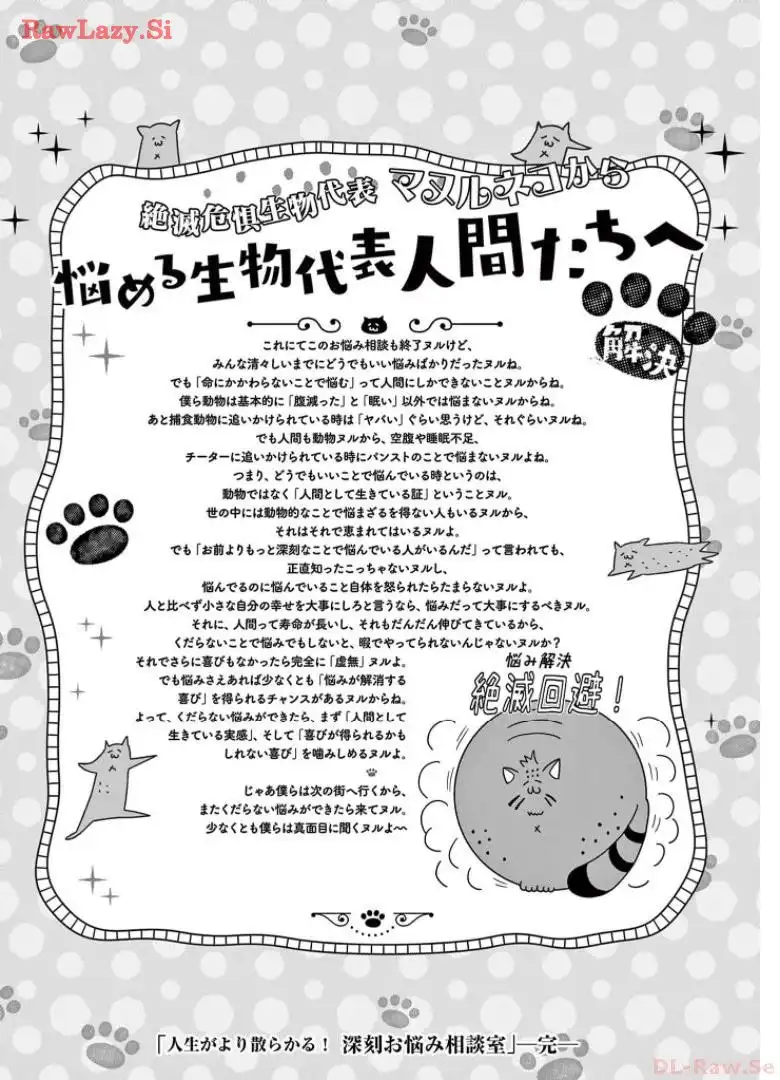 RawLazy.Si
絶滅危惧生物代表 マヌルネコから
悩める生物代表人間たちへ
解決
これにてこのお悩み相談も終了ヌルけど、
みんな清々しいまでにどうでもいい悩みばかりだったヌルね。
でも「命にかかわらないことで悩む」って人間にしかできないことヌルからね。
僕ら動物は基本的に「腹減った」と「眠い」以外では悩まないヌルからね。
あと捕食動物に追いかけられている時は「ヤバい」ぐらい思うけど、それぐらいヌルね。
でも人間も動物ヌルから、空腹や睡眠不足、
チーターに追いかけられている時にパンストのことで悩まないヌルよね。
つまり、どうでもいいことで悩んでいる時というのは、
動物ではなく「人間として生きている証」ということヌル。
世の中には動物的なことで悩まざるを得ない人もいるヌルから、
それはそれで恵まれてはいるヌルよ。
でも「お前よりもっと深刻なことで悩んでいる人がいるんだ」って言われても、
正直知ったこっちゃないヌルし、
悩んでるのに悩んでいること自体を怒られたらたまらないヌルよ。
人と比べず小さな自分の幸せを大事にしろと言うなら、悩みだって大事にするべきヌル。
それに、人間って寿命が長いし、それもだんだん伸びてきているから、
くだらないことで悩みでもしないと、暇でやってられないんじゃないヌルか？
それでさらに喜びもなかったら完全に「虚無」ヌルよ。
でも悩みさえあれば少なくとも「悩みが解消する
喜び」を得られるチャンスがあるヌルからね。
よって、くだらない悩みができたら、まず「人間として
生きている実感」、そして「喜びが得られるかも
しれない喜び」を噛みしめるヌルよ。
じゃあ僕らは次の街へ行くから、
またくだらない悩みができたら来てヌル。
少なくとも僕らは真面目に聞くヌルよ〜〜
悩み解決
絶滅回避！
「人生がより散らかる！ 深刻お悩み相談室」―完―
DL-Raw.Se